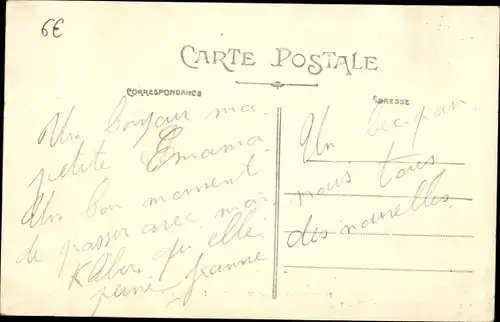 6€
CARTE POSTALE
CORRESPONDANCE
ADRESSE
Un bonjour ma
petite Emama
Un bon moment
de passer avec moi
qu elle
Jeanne
Un bec par
nous tous
des nouvelles.